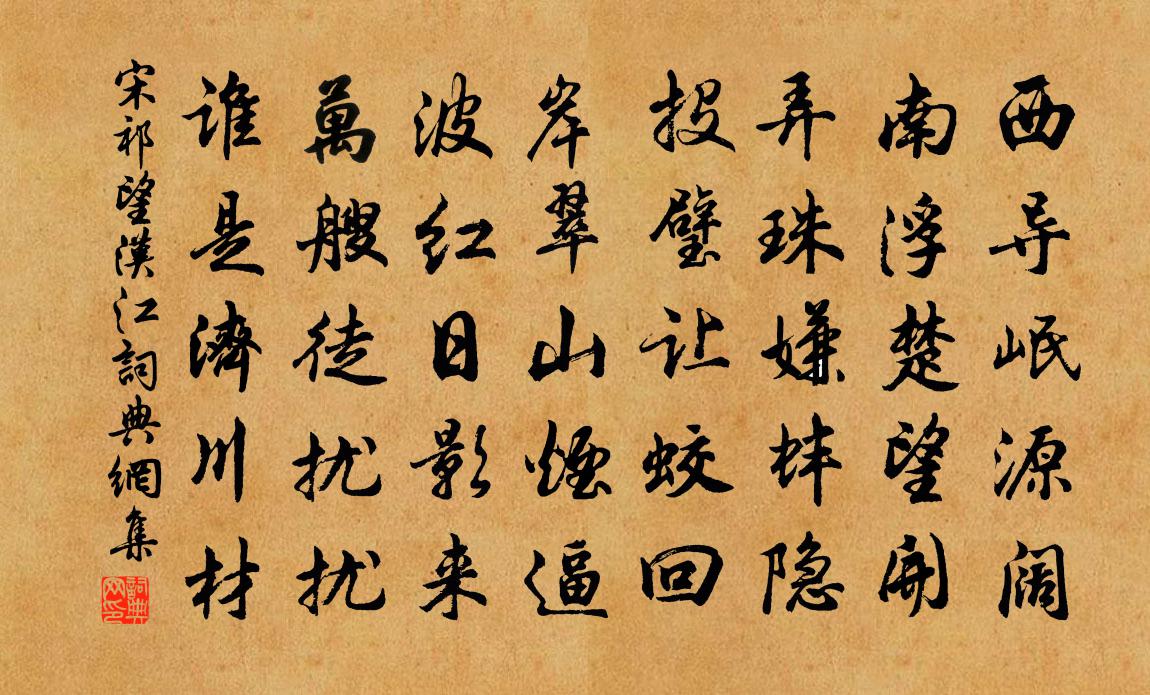 西导岷源阔
南浮楚望开
弄珠嫌蚌隐
投璧让蛟回
岸翠山烟逼
波红日影来
萬艘徒扰扰
谁是濟川材
宋祁望漢江詞典網集
詞典
网印